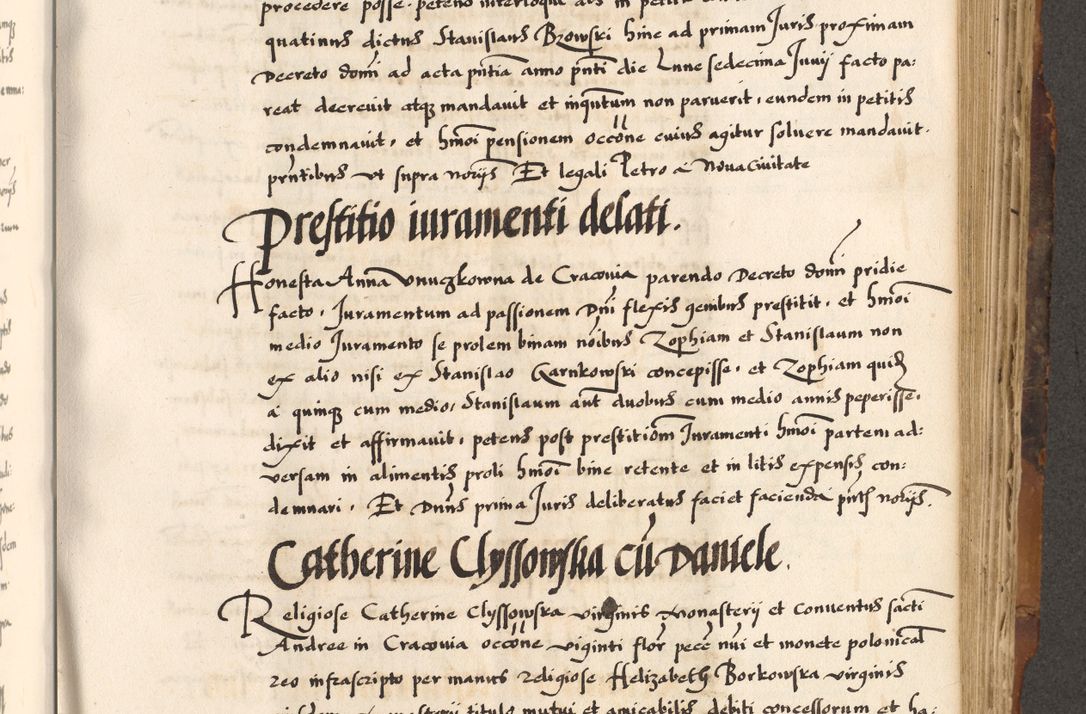 procedere posse, petens interloqui
quatinus dictus Stanislaus Brzowski hinc ad primam Juris proximam
Decreto domi ad acta pntia anno pnti die Lune sedecima Junij facto pa:
reat decrevit atq mandavit et inquntum non paruerit, eundem in petitis
condemnavit, et hmoi pensionem occone cuius agitur soluere mandavit.
pntibus ut supra norijs Et legali Petro a Nova Civitate
Prestitio iuramenti delati.
Honesta Anna Vnuczkowna de Cracovia parendo Decreto domi pridie
facto, Juramentum ad passionem Dni flexis genibus prestitit, et hmoi
medio Juramento se prolem binam noibus Zophiam et Stanislaum non
ex alio nisi ex Stanislao Garnkowski concepisse, et Zophiam quid
a quinq cum medio, Stanislaum aut duobus cum medio annis peperisse,
dixit et affirmavit, petens post prestitiom Juramenti hmoi partem ad:
versam in alimentis proli hmoi bine retente et in litis expensis con:
demnari, Et Dnus prima Juris deliberatus faciet facienda pntb norijs.
Catherine Clyssowska cu Daniele.
Religiose Catherine Clyssowska virginis Monasterij et Conventus sacti
Andree in Cracovia occone viginti flor pece nui et monete polonical
reo infrascripto per manus religiose Helizabeth Borkowska virginis
titulo mutui et amicabilis debiti concessorum et ha: